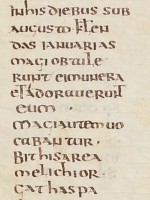 INHIS DIEBUS SUB
AUGUSTO KLEN
DAS IANUARIAS
MAGI OBTULE
RUNT EI MUNERA
ET ADORAUERUNT
EUM
MAGI AUTEM UO
CABANTUR
BITHISAREA
MELICHIOR
GATHASPA